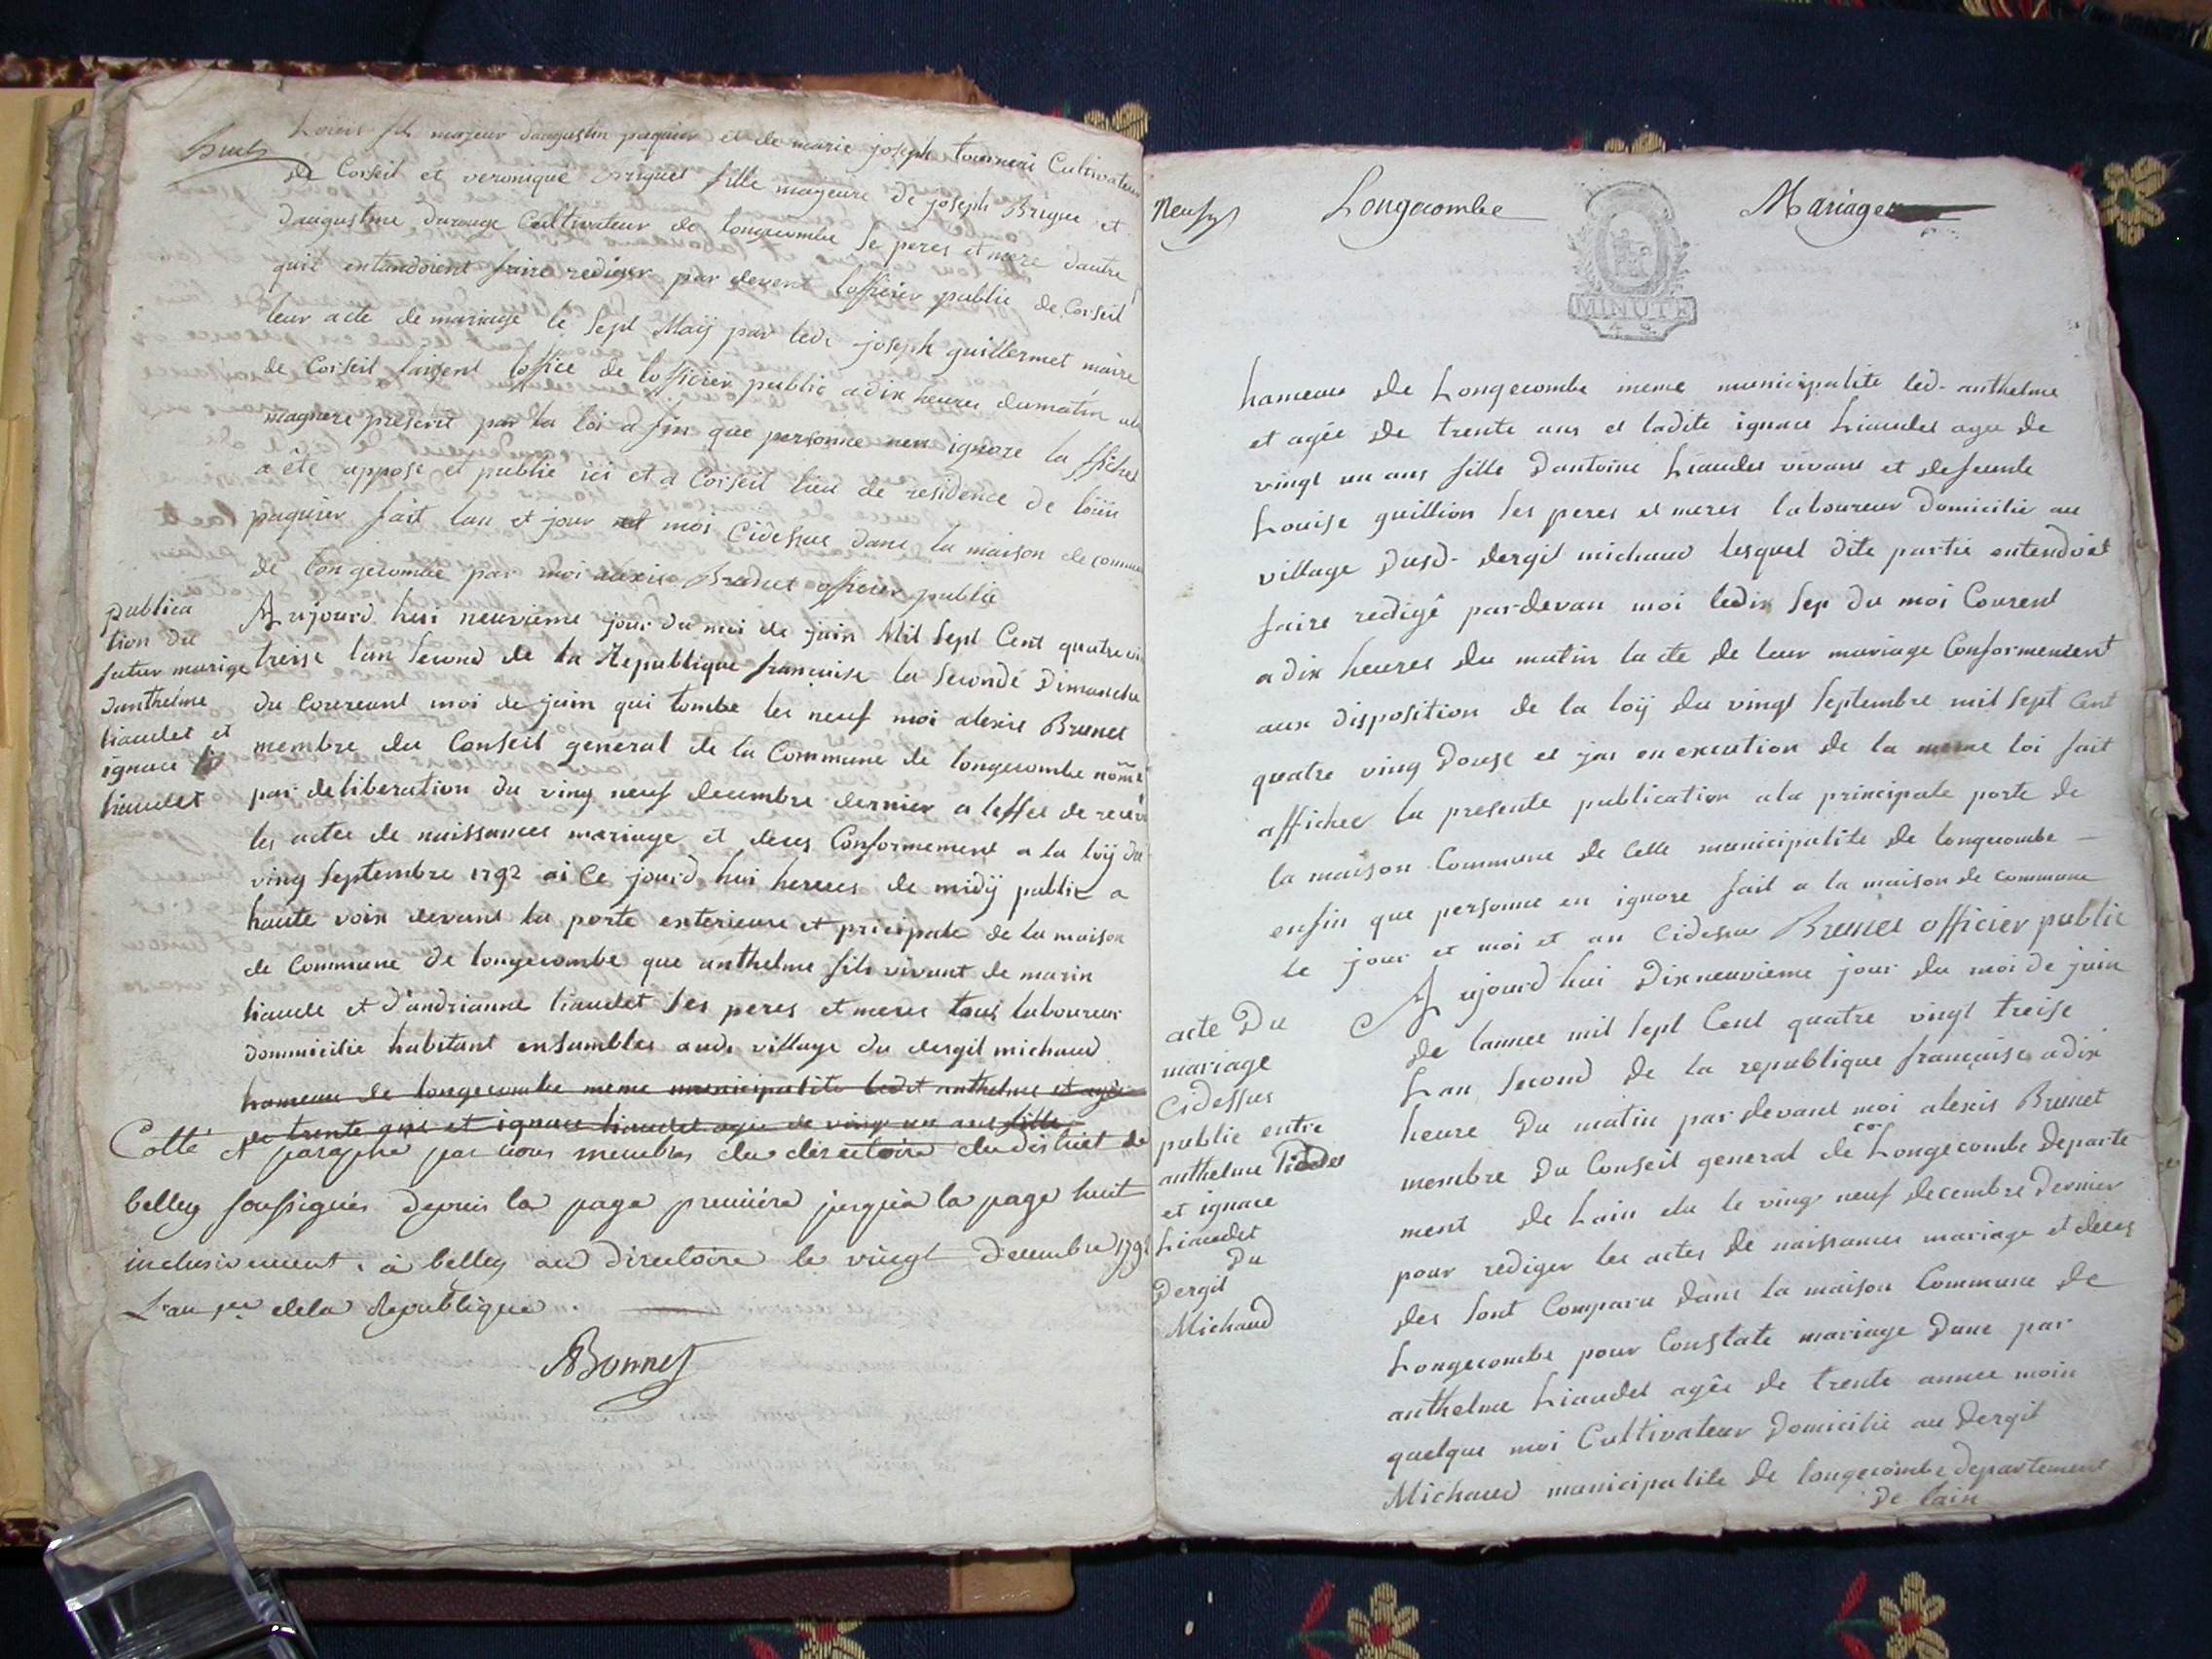 huit
Louis fils majeur daugustin paquier et de marie joseph Cultivateur
de Corseil et veronique fille mageure de joseph Brigue et
daugustine Cultivateur de longecombe se peres et mere dautre
quil entandoient faire rediger par devent lofficier public de Corseil
leur acte de mariage le sept Maij par led. joseph guillermet maire
de Corseil faisent loffice de lofficier public a dix heures dumatin
magnere prescrit par la loi a fin que personne nen ignore la ffiche
a ête appose et publie ici et a Corseil lieu de residence de
paquier fait lan et jour et moi Cidessus dans la maison de commune
de longecombe par moi alexis Brunet officier public
publica
tion du
futur mariage
danthelme
liaudet et
ignace
liaudet
Aujourd hui neuvieme jour du moi de juin Mil sept Cent quatre vin
treise lan second de la Republique francaise la seconde Dimanche
du coureant moi de juin qui tombe les neuf moi alexis Brunet
membre du Conseil general de la Commune de longecombe nomé
par deliberation du ving neuf decembre dernier a leffet de
les actes de naissances mariage et deces Conformement a la loij du
ving septembre 1792 ai Ce jourd hui heures de midij public a
haute voix devant la porte exterieure et pricipale de la maison
de Commune de longecombe que anthelme fils vivant de marin
liaude et d'andrianne liaudet ses peres et meres tous laboureur
dommicilie habitant ensambles aud. village du dergil michaud
hameau de longecombe meme municipalite ledit anthelme et agée
de trente ans et ignace liaudet agée de ving un ans fille
Cotté et paraphé par nous membres du directoire du district de
belley soussignés depuis la page premiére jusqu'à la page huit
inclusivement. à belley au directoire le vingt Decembre 1792
L'an 1er dela Republique.
ABonnet
Neuf
Longecombe
Mariage
MINUTE
hameau de Longecombe meme municipalite led. anthelme
et agée de trente ans et ladite ignace Liaudet agee de
vingt un ans fille Dantoine Liaudet vivant et defeunte
Louise guillion ses peres et meres laboureur Domicilie au
village dusd. dergil michaud lesquel dite partie entendoiet
faire redigé pardevan moi ledix sep du moi Courent
a dix heures du matin lacte de leur mariage Conformement
aux disposition de la loij du vingt septembre mil sept Cent
quatre ving Douse et jai en execution de la meme loi fait
affichee la presente publication ala principale porte de
la maison Commune de Celle municipalite de longecombe —
enfin que personne en ignore fait a la maison de commune
le jour et moi et an Cidessus Brunet officier public
acte Du
mariage
Cidessus
public entre
anthelme liaudet
et ignace
Liaudet
Du
Dergil
Michaud
Aujourd hui Dixneuvieme jour du moi de juin
de lannee mil sept Cent quatre vingt treise
Lan second de la republique française a dix
heure du matin par devant moi alexis Brunet
membre Du Conseil general de Longecombe departe
ment de Lain elu le ving neuf decembre Dernier
pour rediger les actes de naissances mariage et deces
des sont Comparu dans la maison Commune de
Longecombe pour Constate mariage Dune par
anthelme Liaudet agée de trente annee moin
quelque moi Cultivateur Domicilie au Dergil
Michaud municipalite de longecombe departement
De lain